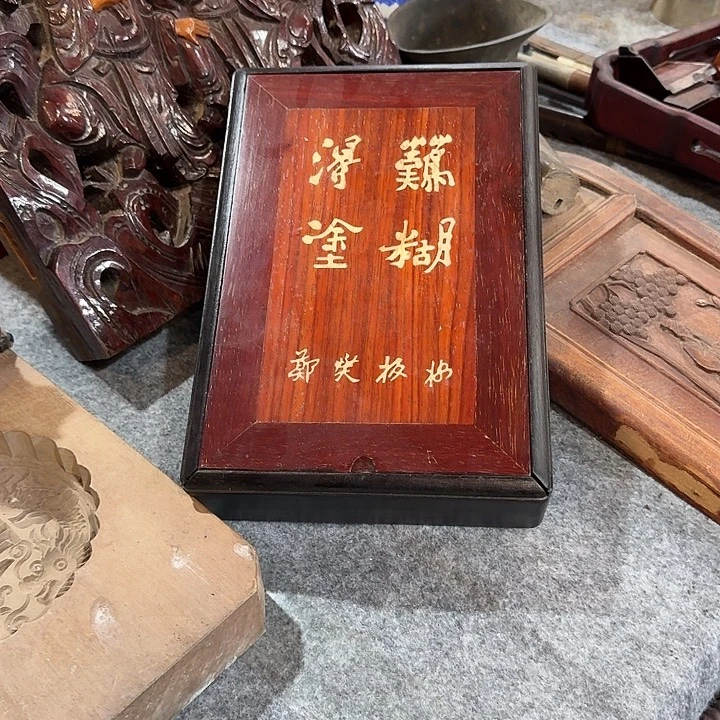 難得
糊塗
鄭燮板橋